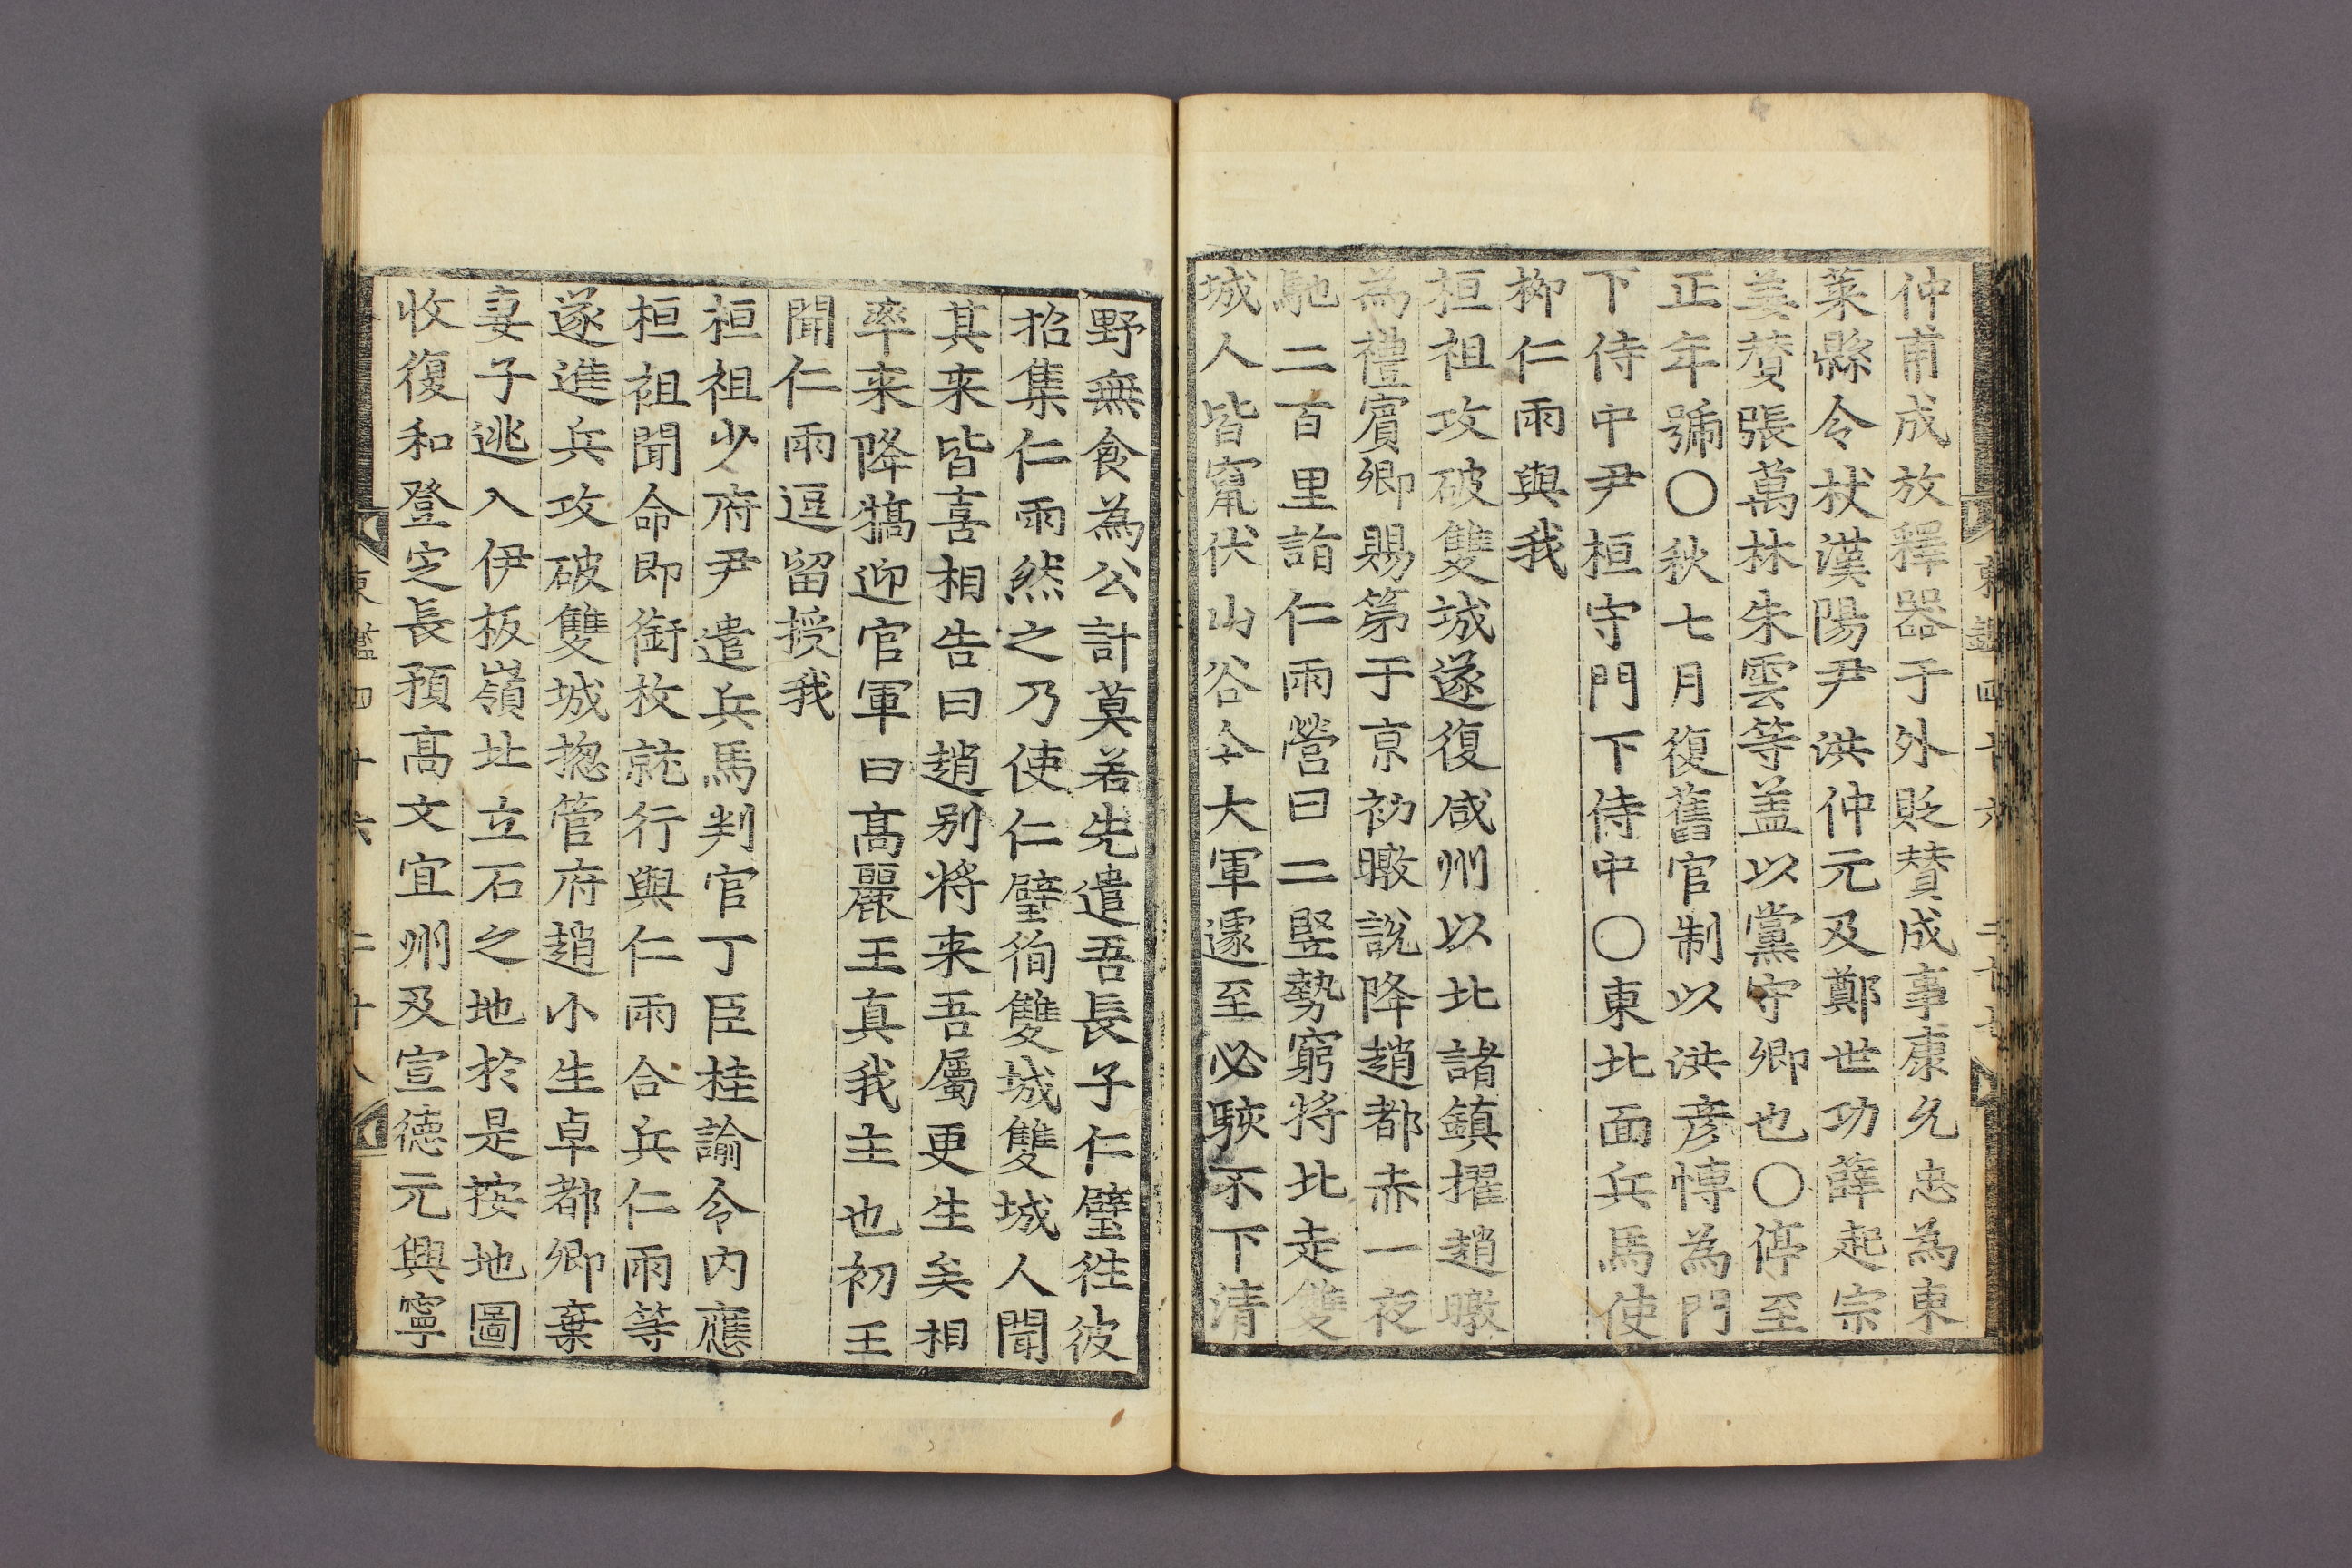 仲甫成放釋器于外貶賛成事康允忠為東
萊縣令杖漢陽尹洪仲元及鄭世功薛起宗
姜賛張萬林朱雲等盖以黨守卿也○停至
正年號○秋七月復舊官制以洪彦博為門
下侍中尹桓守門下侍中○東北面兵馬使
柳仁雨與我
桓祖攻破雙城遂復咸州以北諸鎮擢趙暾
為禮賔卿賜第于京初暾說降趙都赤一夜
馳二百里詣仁雨營曰二竪勢窮将北走雙
城人皆竄伏山谷今大軍遽至必駭不下清
野無食為公計莫若先遣吾長子仁璧徃彼
招集仁雨然之乃使仁璧徇雙城雙城人聞
其来皆喜相告曰趙别将来吾屬更生矣相
率来降犒迎官軍曰髙麗王真我主也初王
聞仁雨逗留授我
桓祖少府尹遣兵馬判官丁臣桂諭令内應
桓祖聞命即銜枚就行與仁雨合兵仁雨等
遂進兵攻破雙城摠管府趙小生卓都卿棄
妻子逃入伊板嶺北立石之地於是按地圖
收復和登定長預髙文宜州及宣徳元興寧
東鑑四十六 二十八